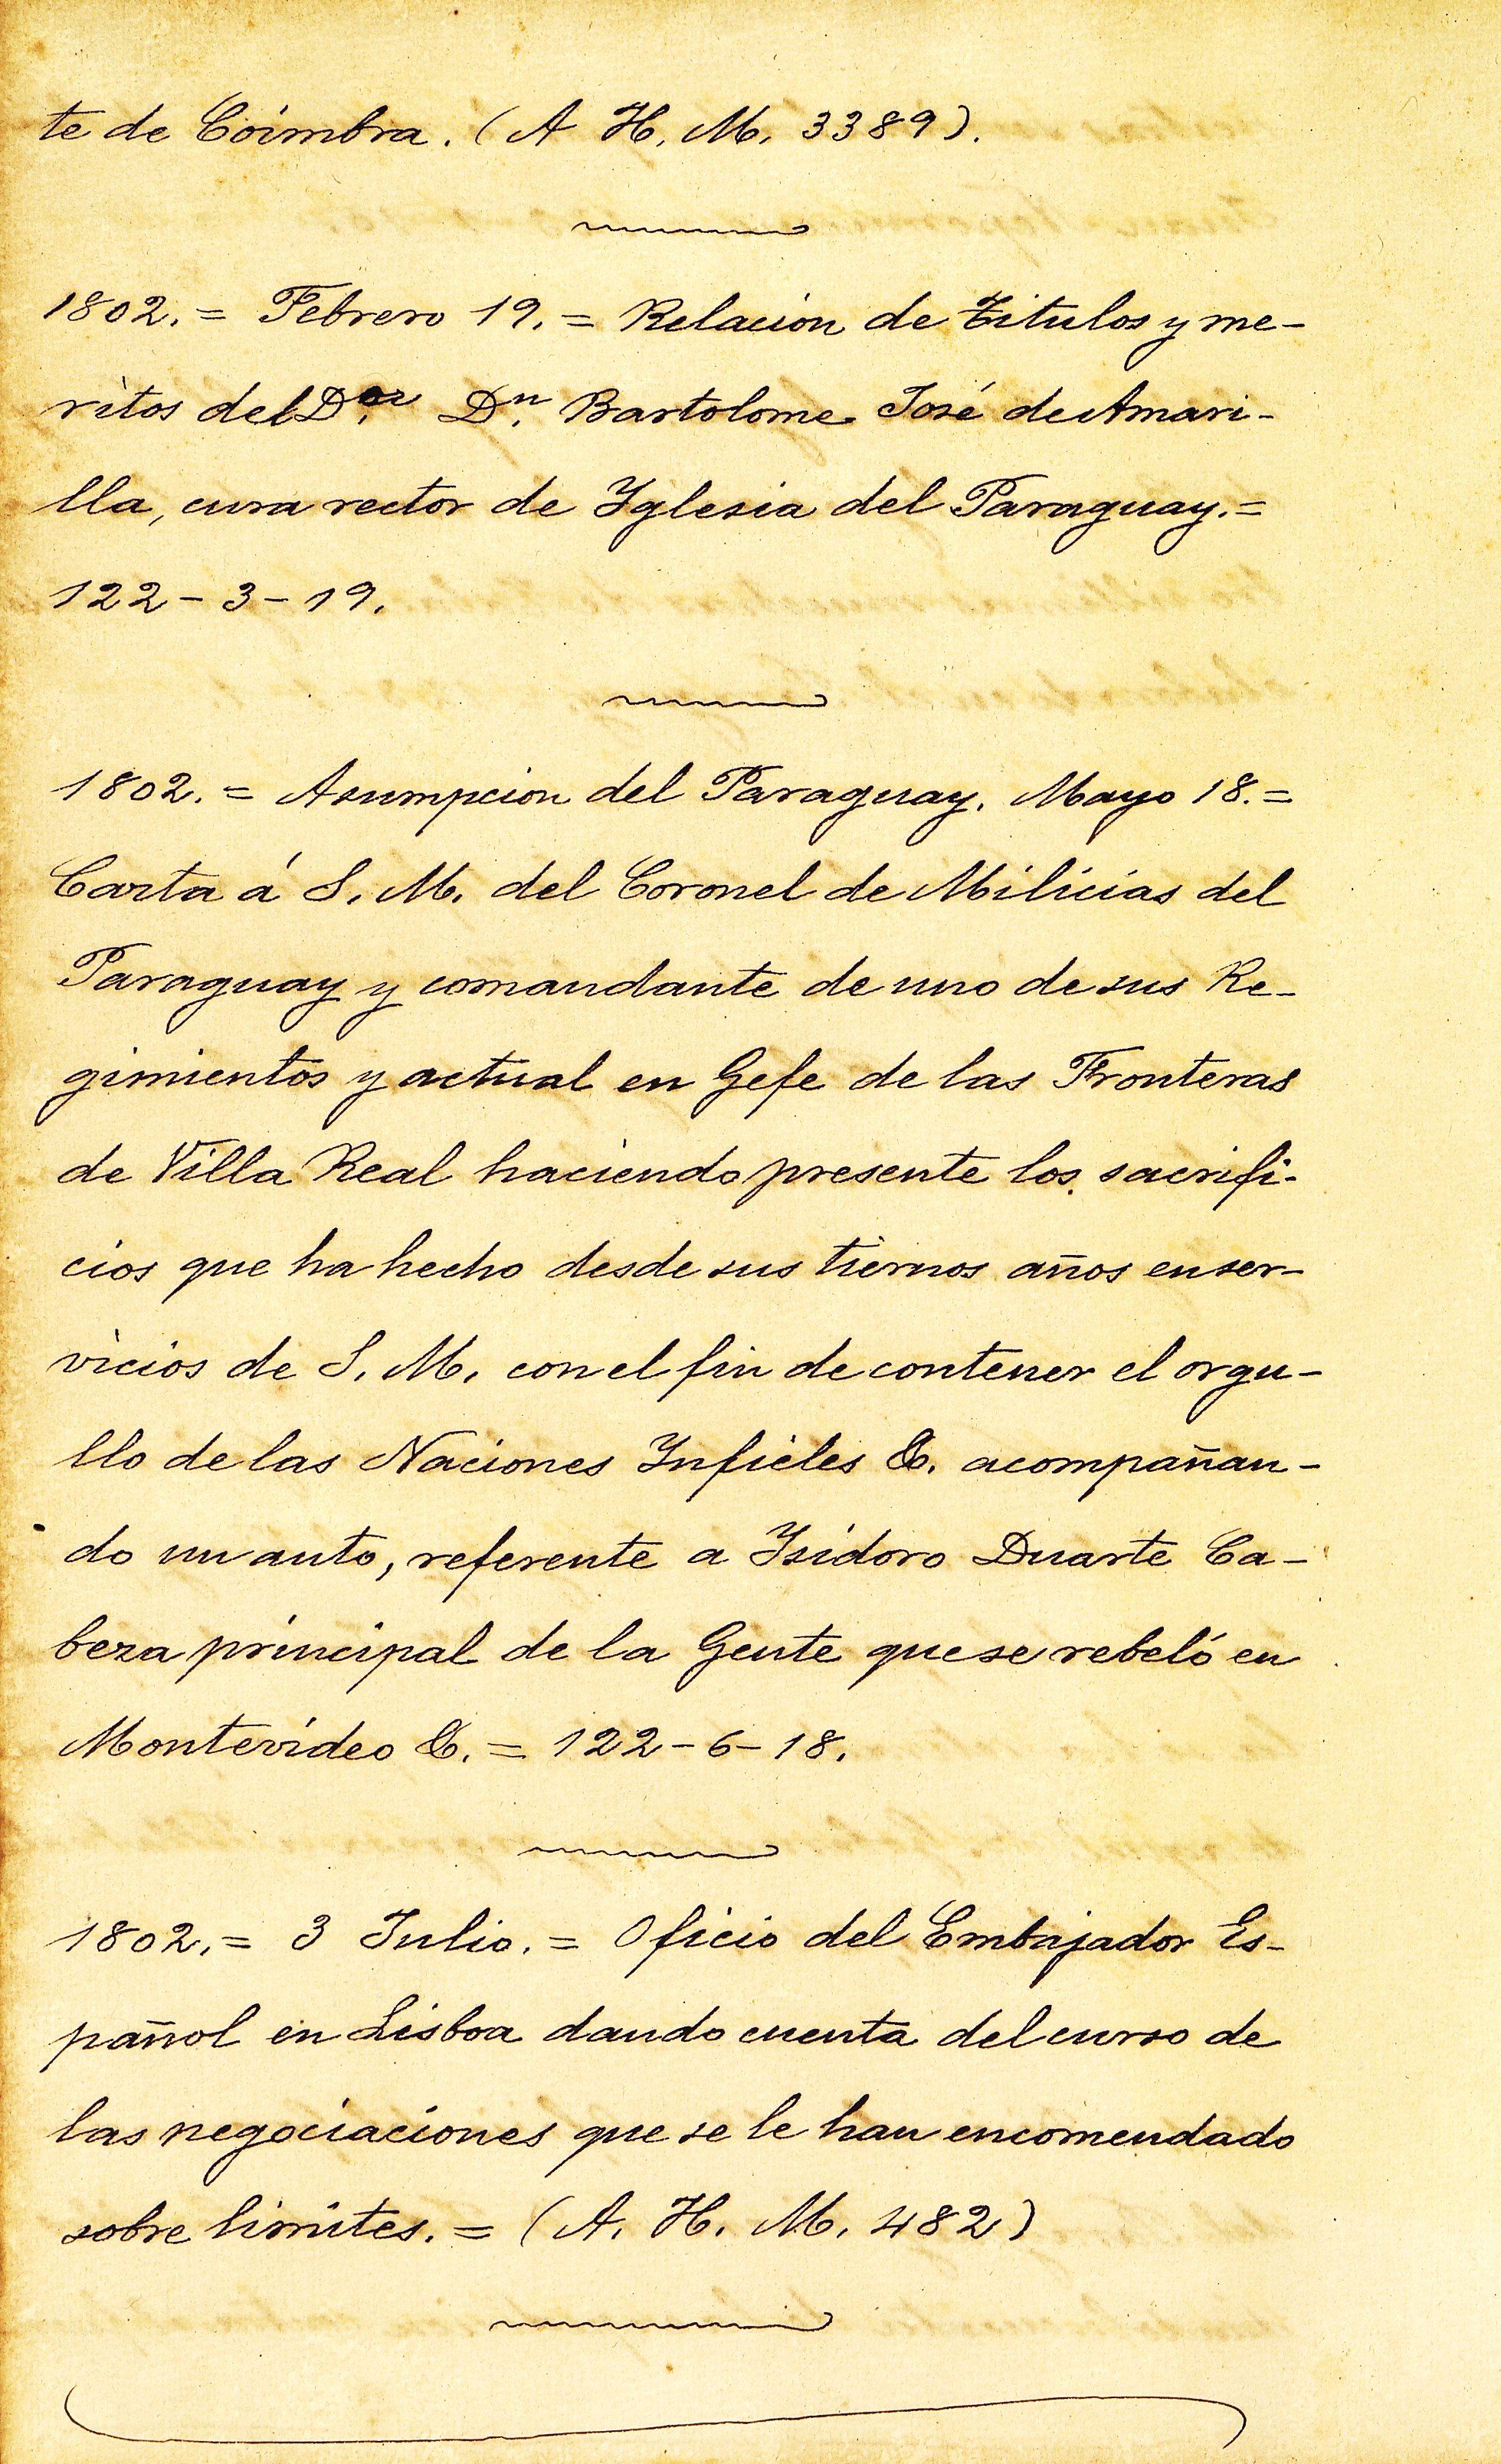 te de Coimbra. (A H. M. 3389).
1802. = Febrero 19. = Relacion de Titulos y me-
ritos del D.or D.n Bartolome José de Amari-
lla, cura rector de Yglesia del Paraguay. =
122-3-19.
1802. = Asumpcion del Paraguay. Mayo 18. =
Carta á S. M. del Coronel de Milicias del
Paraguay y comandante de uno de sus Re-
gimientos y actual en Gefe de las Fronteras
de Villa Real haciendo presente los sacrifi-
cios que ha hecho desde sus tiernos años en ser-
vicios de S. M. con el fin de contener el orgu-
llo de las Naciones Infieles &. acompañan-
do un auto, referente a Isidoro Duarte Ca-
beza principal de la Gente que se rebeló en
Montevideo &. = 122-6-18.
1802. = 3 Julio. = Oficio del Embajador Es-
pañol en Lisboa dando cuenta del curso de
las negociaciones que se le han encomendado
sobre limites. = (A. H. M. 482)